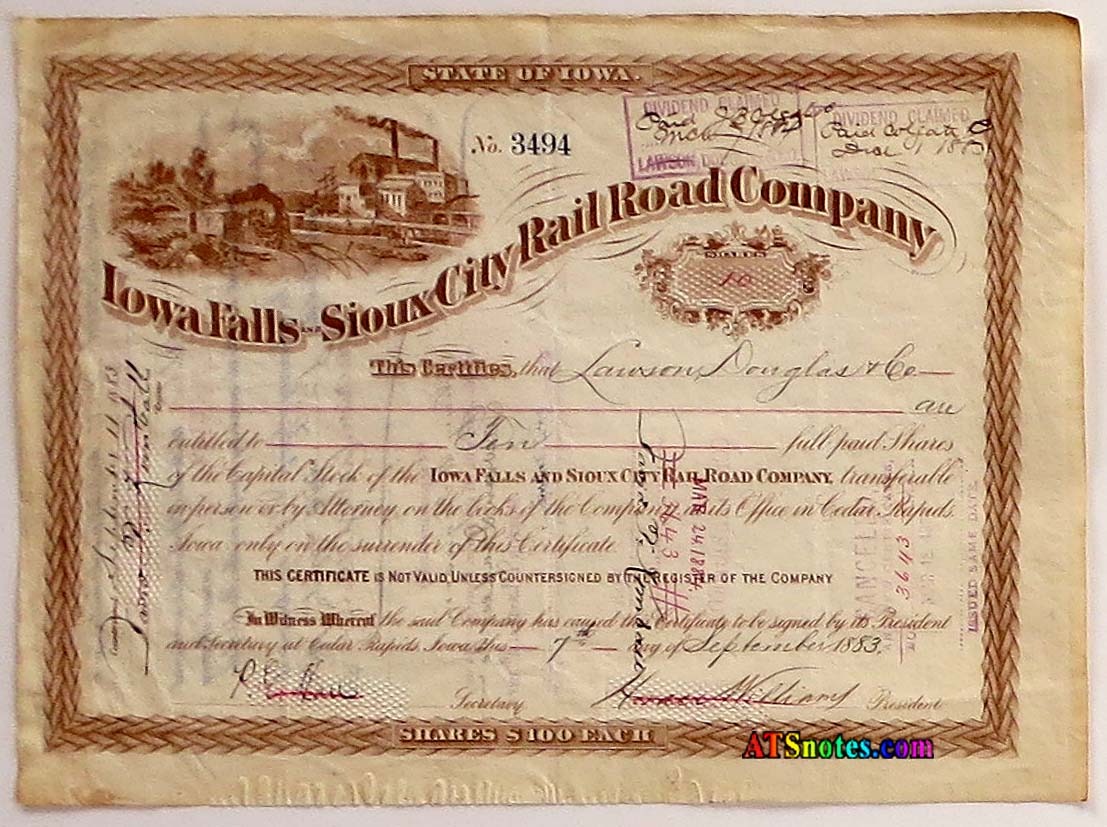 STATE OF IOWA.
No. 3494
DIVIDEND CLAIMED
Paid
LAWSON, DOUGLAS
DIVIDEND CLAIMED
Paid Colgate & Co
Iowa Falls AND Sioux City Rail Road Company
SHARES
10
This Certifies, that Lawson, Douglas & Co
are
entitled to Ten full paid Shares
of the Capital Stock of the IOWA FALLS AND SIOUX CITY RAIL ROAD COMPANY, transferable
in person or by Attorney, on the books of the Company at its Office in Cedar Rapids
Iowa only on the surrender of this Certificate.
THIS CERTIFICATE IS NOT VALID, UNLESS COUNTERSIGNED BY THE REGISTER OF THE COMPANY
In Witness Whereof the said Company has caused this Certificate to be signed by its President
and Secretary at Cedar Rapids, Iowa this 7th day of September 1883.
P. E. Hall Secretary
Horace Williams President
September 11 1883
MAR 24 1884
3643
CANCELLED
3643
ISSUED SAME DATE
SHARES $100 EACH
ATSnotes.com